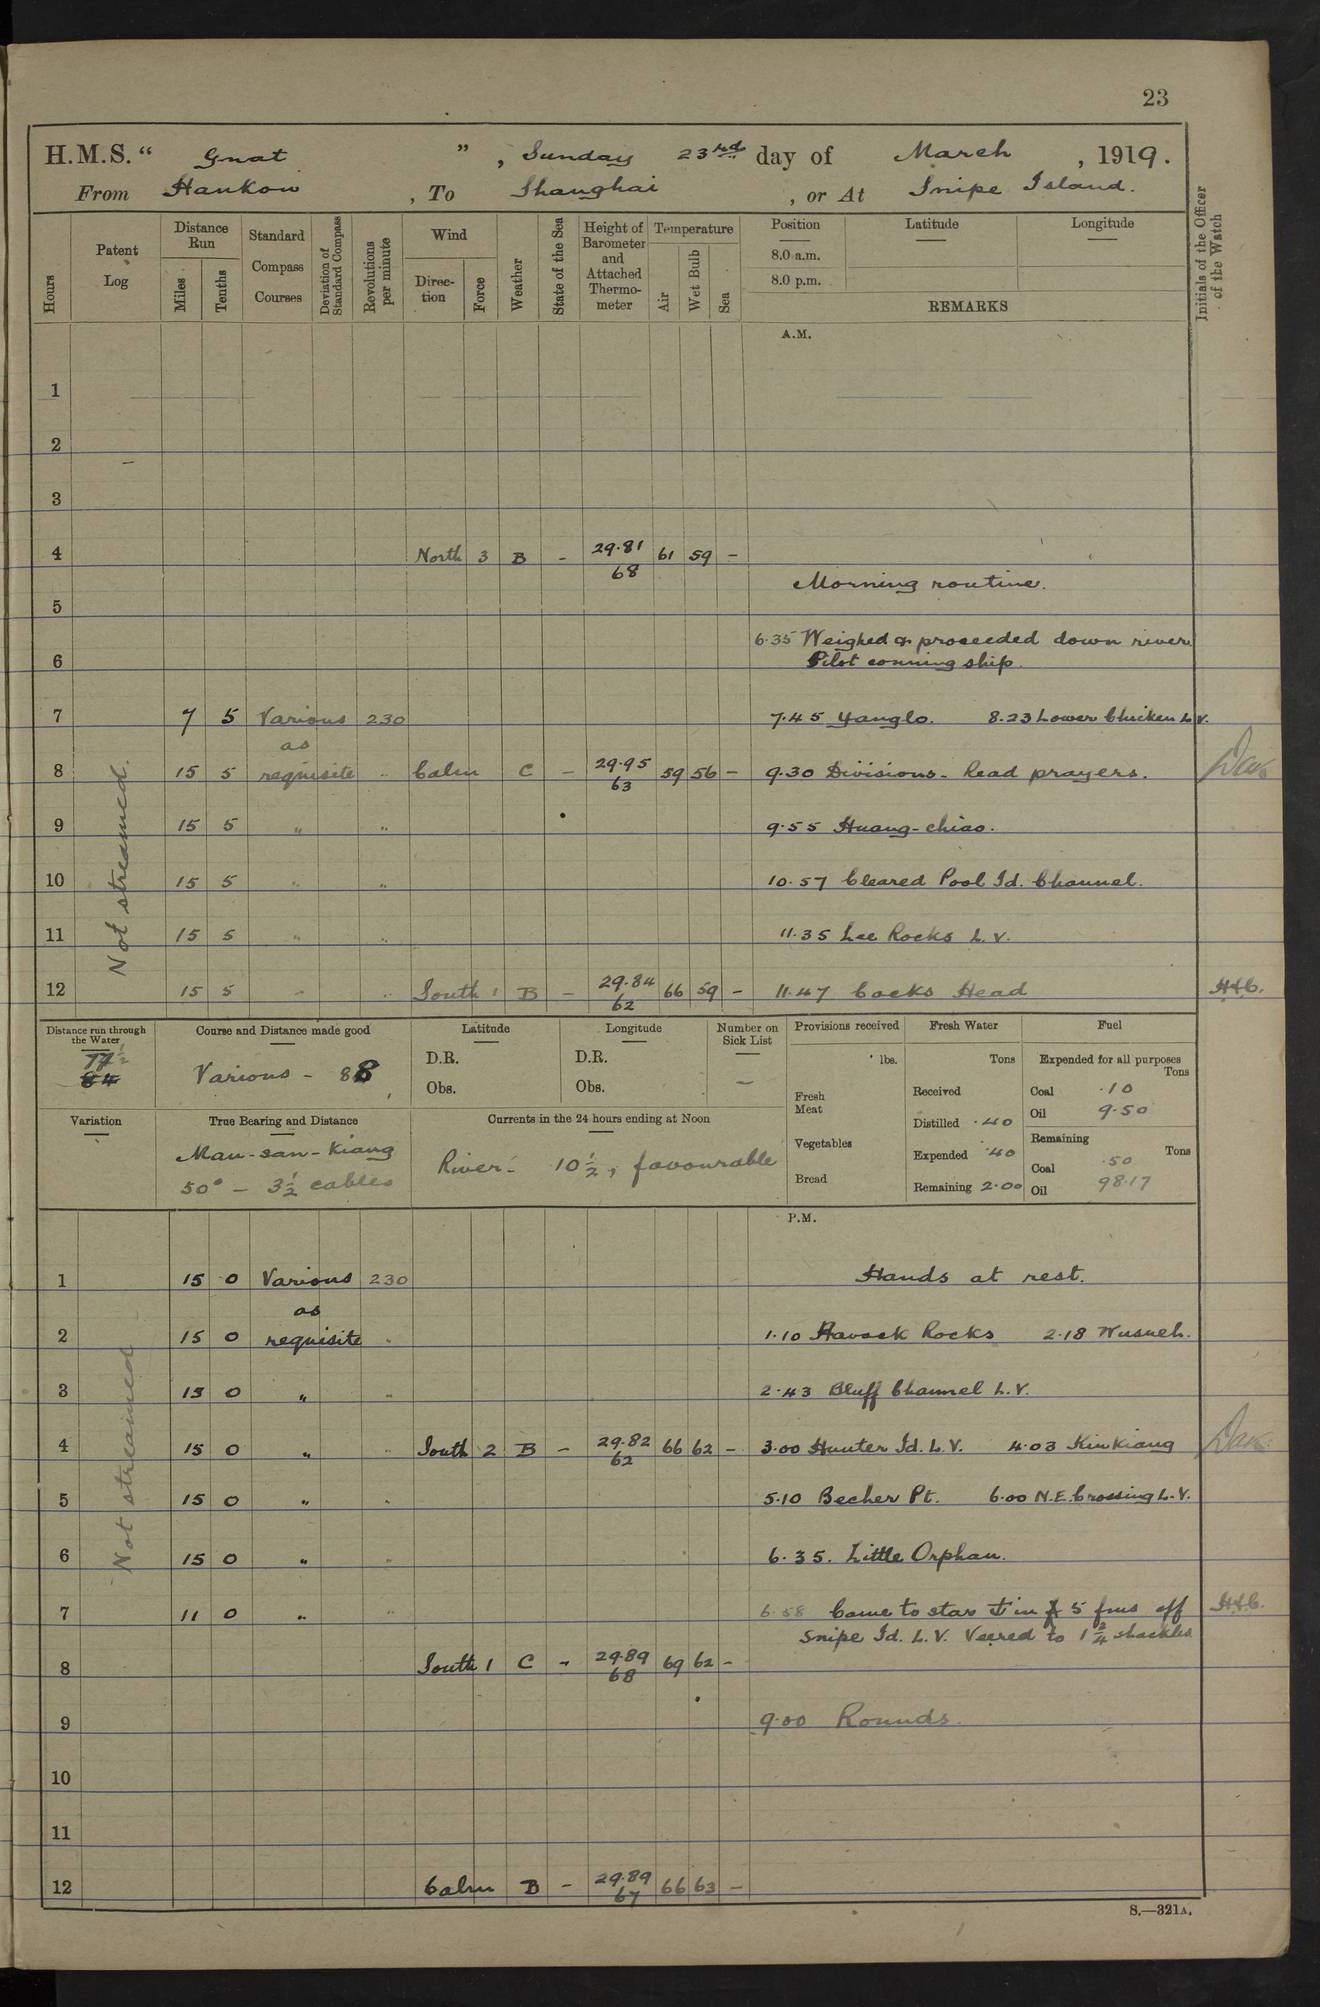 23
H.M.S. “ Gnat ” , Sunday 23rd day of March , 1919.
From Hankow , To Shanghai , or At Snipe Island.
Hours
Patent Log
Distance Run
Miles
Tenths
Standard Compass Courses
Deviation of Standard Compass
Revolutions per minute
Wind
Direction
Force
Weather
State of the Sea
Height of Barometer and Attached Thermometer
Temperature
Air
Wet Bulb
Sea
Position
Latitude
Longitude
8.0 a.m.
8.0 p.m.
REMARKS
Initials of the Officer of the Watch
A.M.
1
2
3
4 North 3 B - 29.81 61 59 -
68
Morning routine.
5
6.35 Weighed & proceeded down river
6 Pilot conning ship.
7 7 5 Various 230 7.45 Yanglo. 8.23 Lower Chicken L.V.
as
8 15 5 requisite " Calm C - 29.95 59 56 - 9.30 Divisions - Read prayers.
63
9 15 5 " " 9.55 Huang-chiao.
10 15 5 " " 10.57 Cleared Pool Id. Channel.
11 15 5 " " 11.35 Lee Rocks L.V.
12 15 5 " " South 1 B - 29.84 66 59 - 11.47 Cocks Head
62
Not streamed.
Distance run through the Water
77½
84
Course and Distance made good
Various - 88
Latitude
D.R.
Obs.
Longitude
D.R.
Obs.
Number on Sick List
-
Provisions received
lbs.
Fresh Meat
Vegetables
Bread
Fresh Water
Tons
Received
Distilled .40
Expended .40
Remaining 2.00
Fuel
Expended for all purposes
Tons
Coal .10
Oil 9.50
Remaining
Tons
Coal .50
Oil 98.17
Variation
True Bearing and Distance
Mau-san-Kiang
50° - 3½ cables
Currents in the 24 hours ending at Noon
River - 10½, favourable
P.M.
1 15 0 Various 230 Hands at rest.
as
2 15 0 requisite " 1.10 Havock Rocks 2.18 Wusueh.
3 15 0 " " 2.43 Bluff Channel L.V.
4 15 0 " " South 2 B - 29.82 66 62 - 3.00 Hunter Id. L.V. 4.03 Kinkiang
62
5 15 0 " " 5.10 Becher Pt. 6.00 N.E. Crossing L.V.
6 15 0 " " 6.35. Little Orphan.
7 11 0 " " 6.58 Came to star ⚓ in 5 fms off
Snipe Id. L.V. Veered to 1¾ shackles
8 South 1 C - 29.89 69 62 -
68
9 9.00 Rounds.
10
11
12 Calm B - 29.89 66 63 -
67
Not streamed
S.—321A.